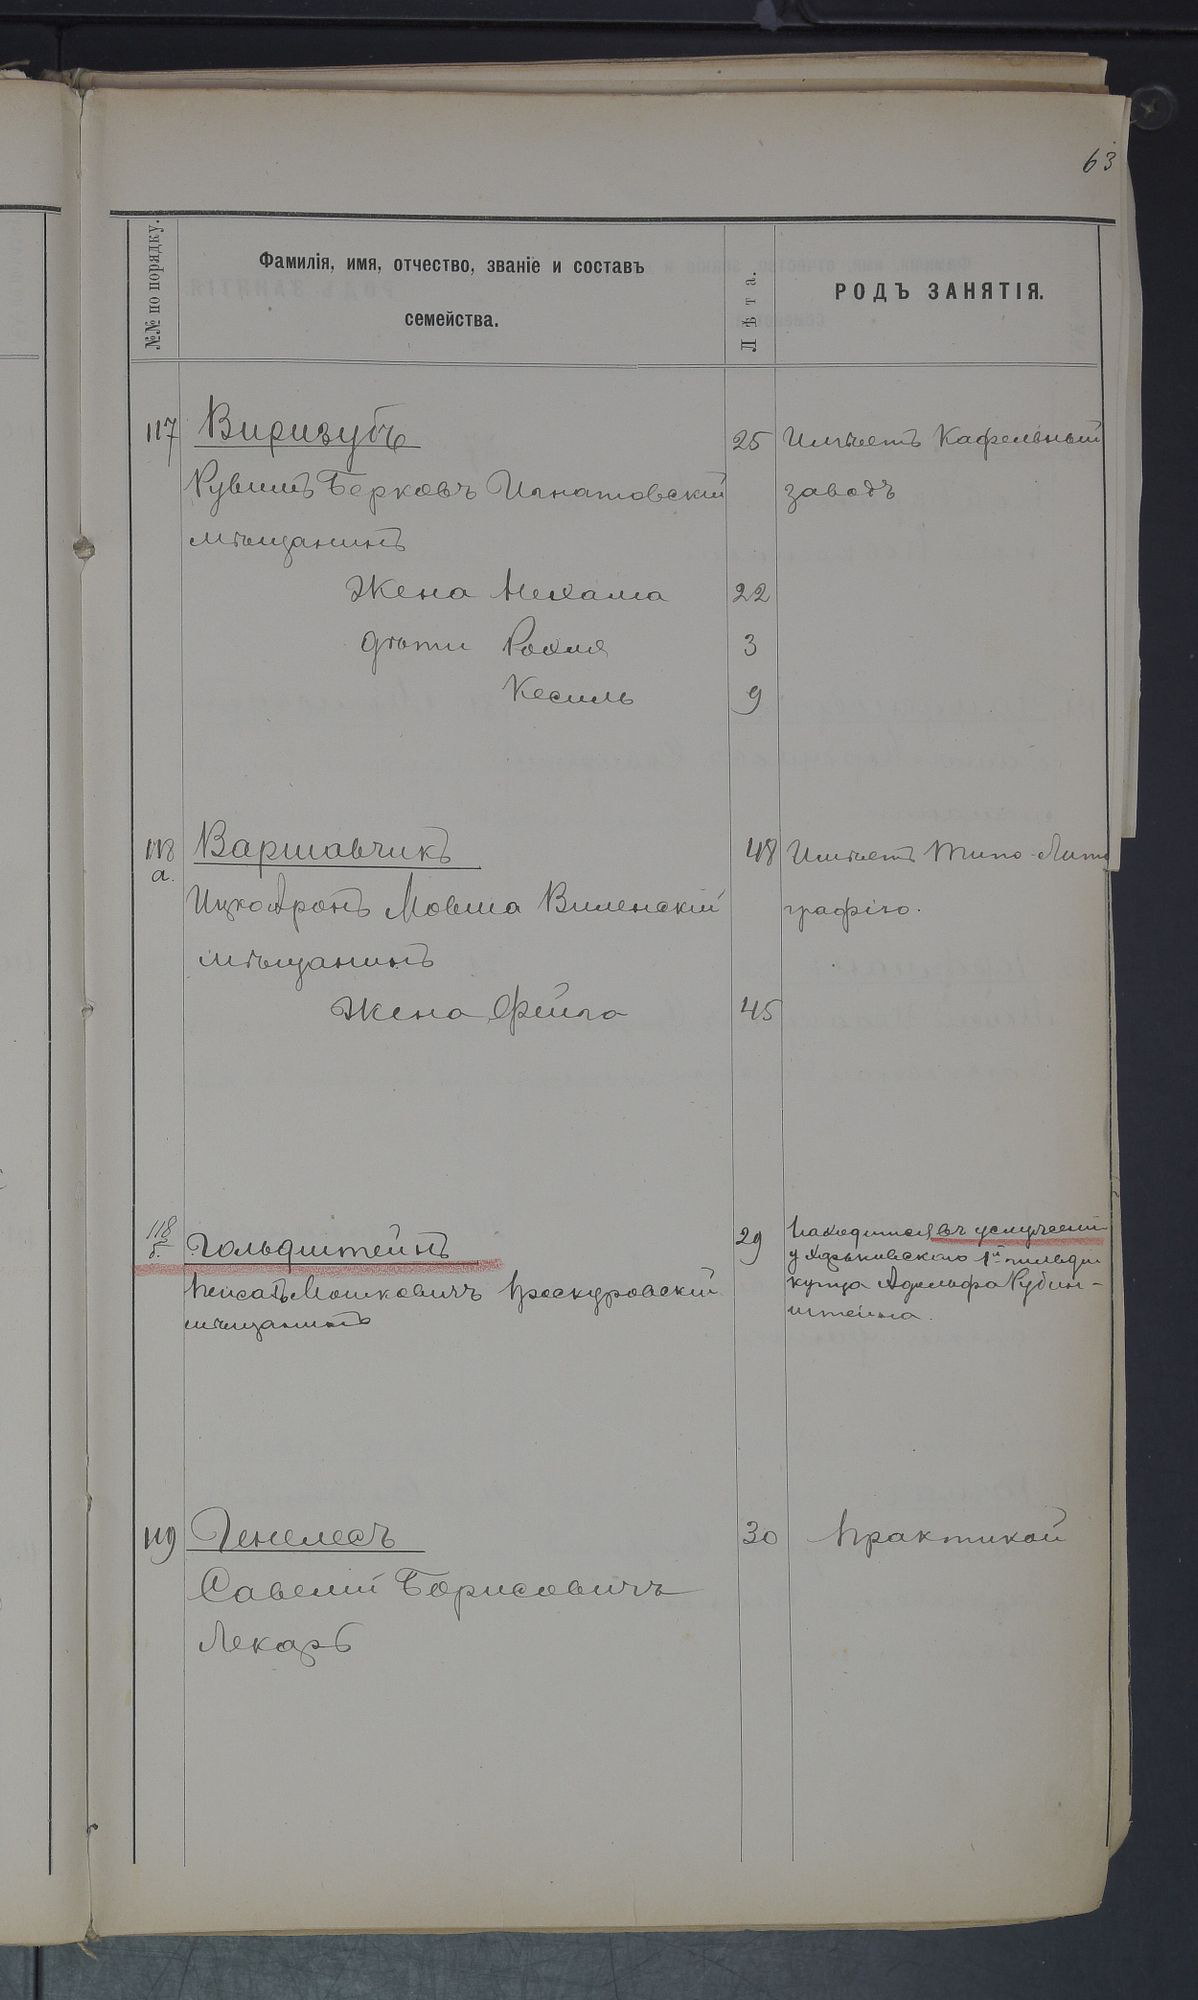 63
№№ по порядку.
Фамилія, имя, отчество, званіе и составъ
семейства.
Лѣта.
РОДЪ ЗАНЯТІЯ.
117 Виризубъ 25 Имѣетъ Кафельный
Рувимъ Берковъ Игнатовскій заводъ
мѣщанинъ
Жена Нехама 22
дѣти Рохля 3
Кесиль 9
118 Варшавчикъ 48 Имѣетъ Типо-Лито
а.
Ицко Аронъ Мовша Виленскій графію.
мѣщанинъ
Жена Фейга 45
118
б. Гольдштейнъ 29 Находится въ услуженіи
у Харьковскаго 1й гильдіи
Пейсахъ Мошковичъ Проскуровскій купца Адольфа Рубин-
мѣщанинъ штейна.
119 Генелесъ 30 Практикой
Савелій Борисовичъ
Лекарь